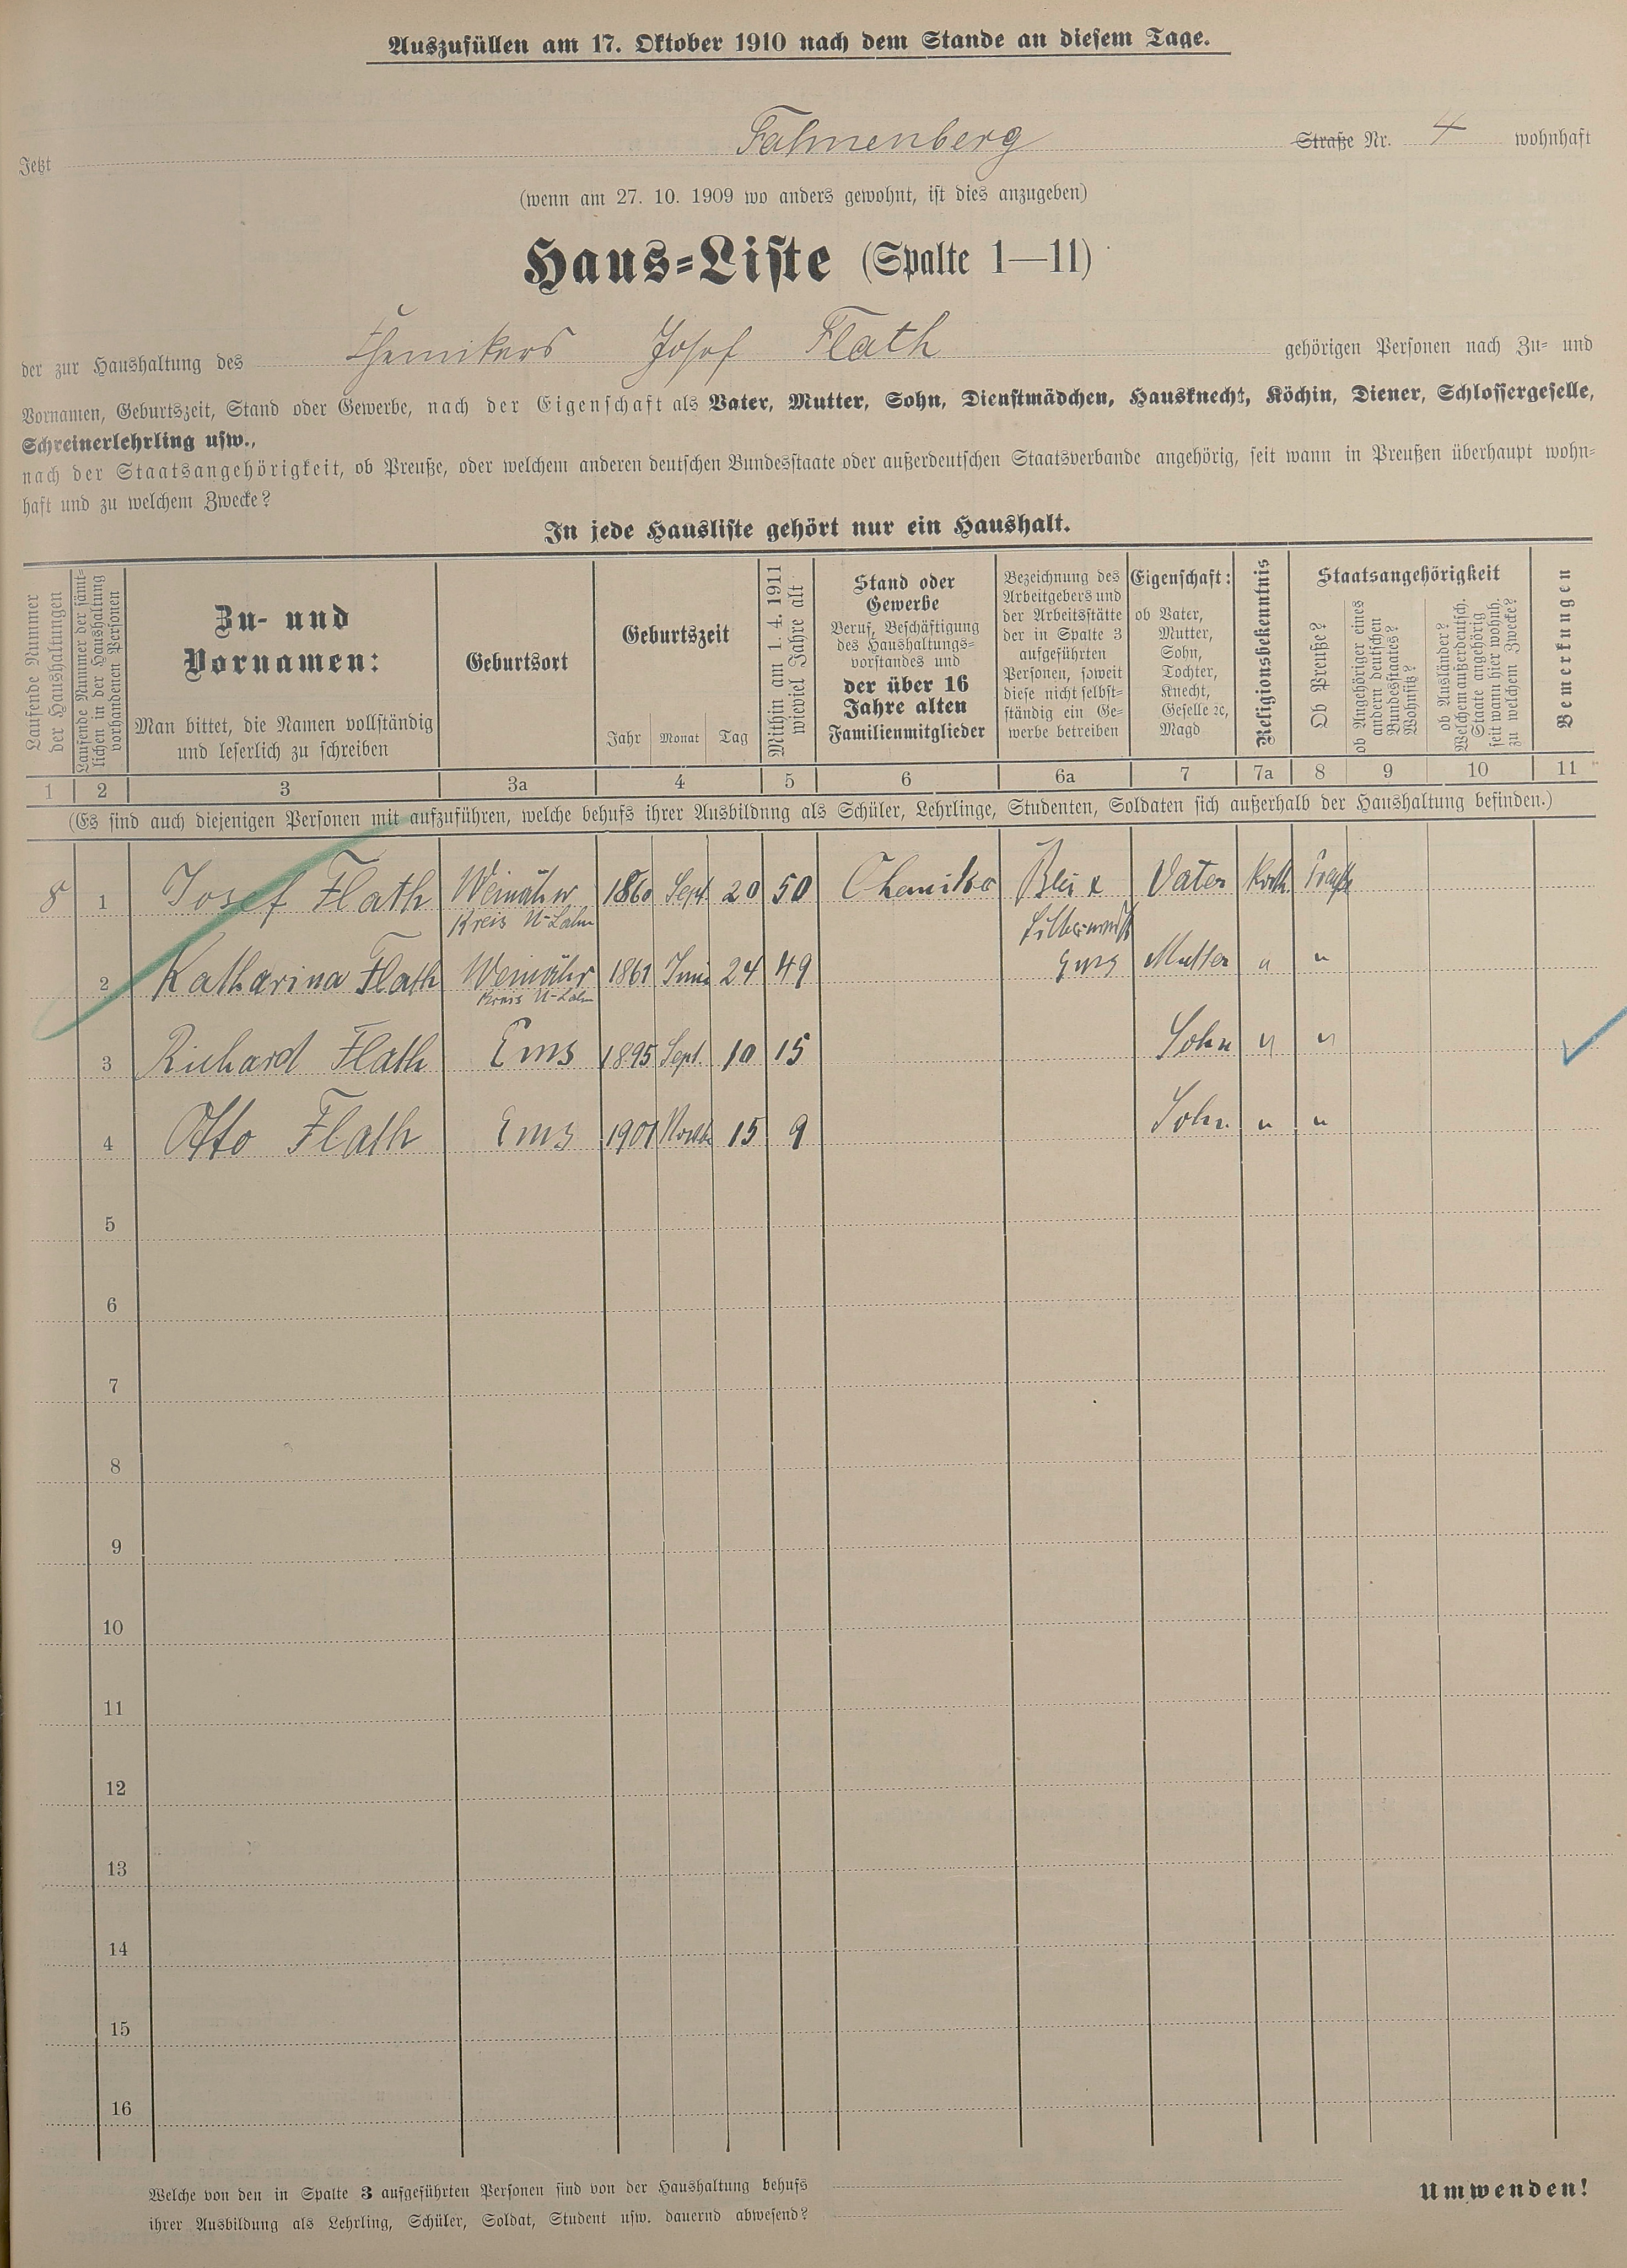 Auszufüllen am 17. Oktober 1910 nach dem Stande an diesem Tage.
Jetzt Fahnenberg Straße Nr. 4 wohnhaft
(wenn am 27. 10. 1909 wo anders gewohnt, ist dies anzugeben)
Haus-Liste (Spalte 1—11)
der zur Haushaltung des Chemikers Josef Flath gehörigen Personen nach Zu- und
Vornamen, Geburtszeit, Stand oder Gewerbe, nach der Eigenschaft als Vater, Mutter, Sohn, Dienstmädchen, Hausknecht, Köchin, Diener, Schlossergeselle,
Schreinerlehrling usw.,
nach der Staatsangehörigkeit, ob Preuße, oder welchem anderen deutschen Bundesstaate oder außerdeutschen Staatsverbande angehörig, seit wann in Preußen überhaupt wohn-
haft und zu welchem Zwecke?
In jede Hausliste gehört nur ein Haushalt.
Laufende Nummer
der Haushaltungen
Laufende Nummer der sämt-
lichen in der Haushaltung
vorhandenen Personen
Zu- und
Vornamen:
Man bittet, die Namen vollständig
und leserlich zu schreiben
Geburtsort
Geburtszeit
Jahr Monat Tag
Mithin am 1. 4. 1911
wieviel Jahre alt
Stand oder
Gewerbe
Beruf, Beschäftigung
des Haushaltungs-
vorstandes und
der über 16
Jahre alten
Familienmitglieder
Bezeichnung des
Arbeitgebers und
der Arbeitsstätte
der in Spalte 3
aufgeführten
Personen, soweit
diese nicht selbst-
ständig ein Ge-
werbe betreiben
Eigenschaft:
ob Vater,
Mutter,
Sohn,
Tochter,
Knecht,
Geselle ꝛc,
Magd
Religionsbekenntnis
Staatsangehörigkeit
Ob Preuße?
ob Angehöriger eines
andern deutschen
Bundesstaates?
Wohnsitz?
ob Ausländer?
Welchem außerdeutsch.
Staate angehörig
seit wann hier wohnh.
zu welchem Zwecke?
Bemerkungen
1 2 3 3a 4 5 6 6a 7 7a 8 9 10 11
(Es sind auch diejenigen Personen mit aufzuführen, welche behufs ihrer Ausbildung als Schüler, Lehrlinge, Studenten, Soldaten sich außerhalb der Haushaltung befinden.)
8 1 Josef Flath Weinähr 1860 Sept. 20 50 Chemiker Blei & Vater Kath. Preuße
Kreis U-Lahn
2 Katharina Flath Weinähr 1861 Juni 24 49 Ems Mutter " "
Kreis U-Lahn
3 Richard Flath Ems 1895 Sept. 10 15 Sohn " "
4 Otto Flath Ems 1901 Novbr 15 9 Sohn " "
5
6
7
8
9
10
11
12
13
14
15
16
Welche von den in Spalte 3 aufgeführten Personen sind von der Haushaltung behufs
ihrer Ausbildung als Lehrling, Schüler, Soldat, Student usw. dauernd abwesend?
Umwenden!